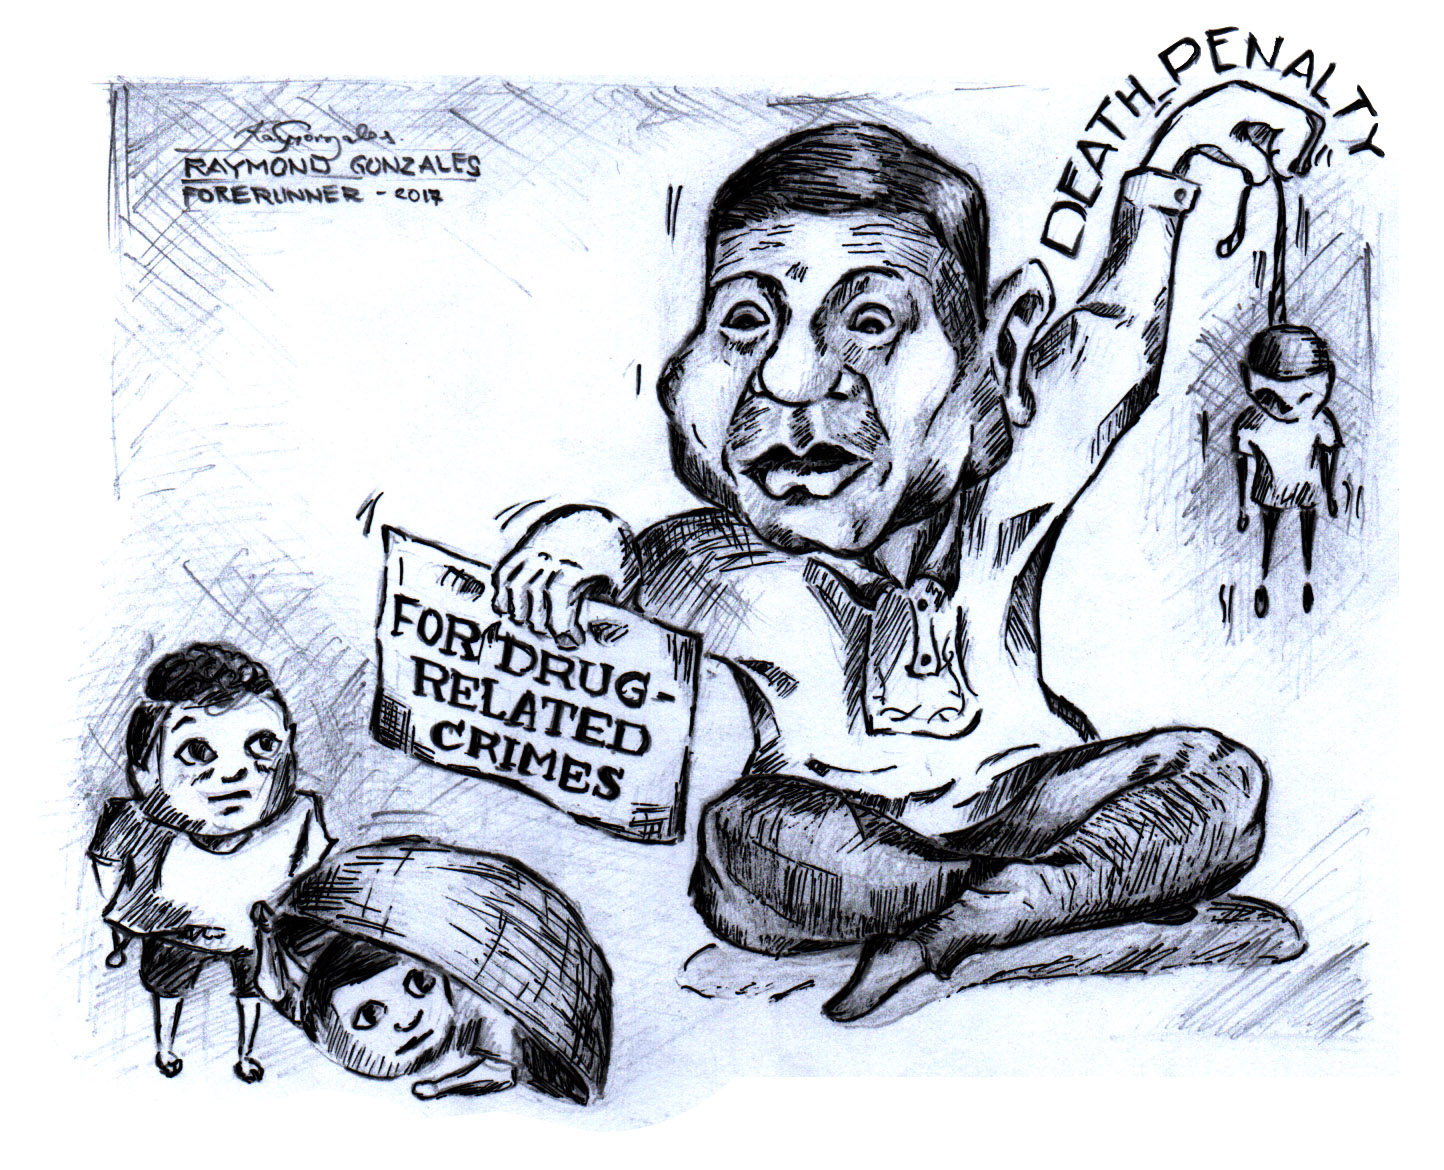 RayGonzales.
RAYMOND GONZALES
FORERUNNER - 2017
DEATH PENALTY
FOR DRUG-
RELATED
CRIMES